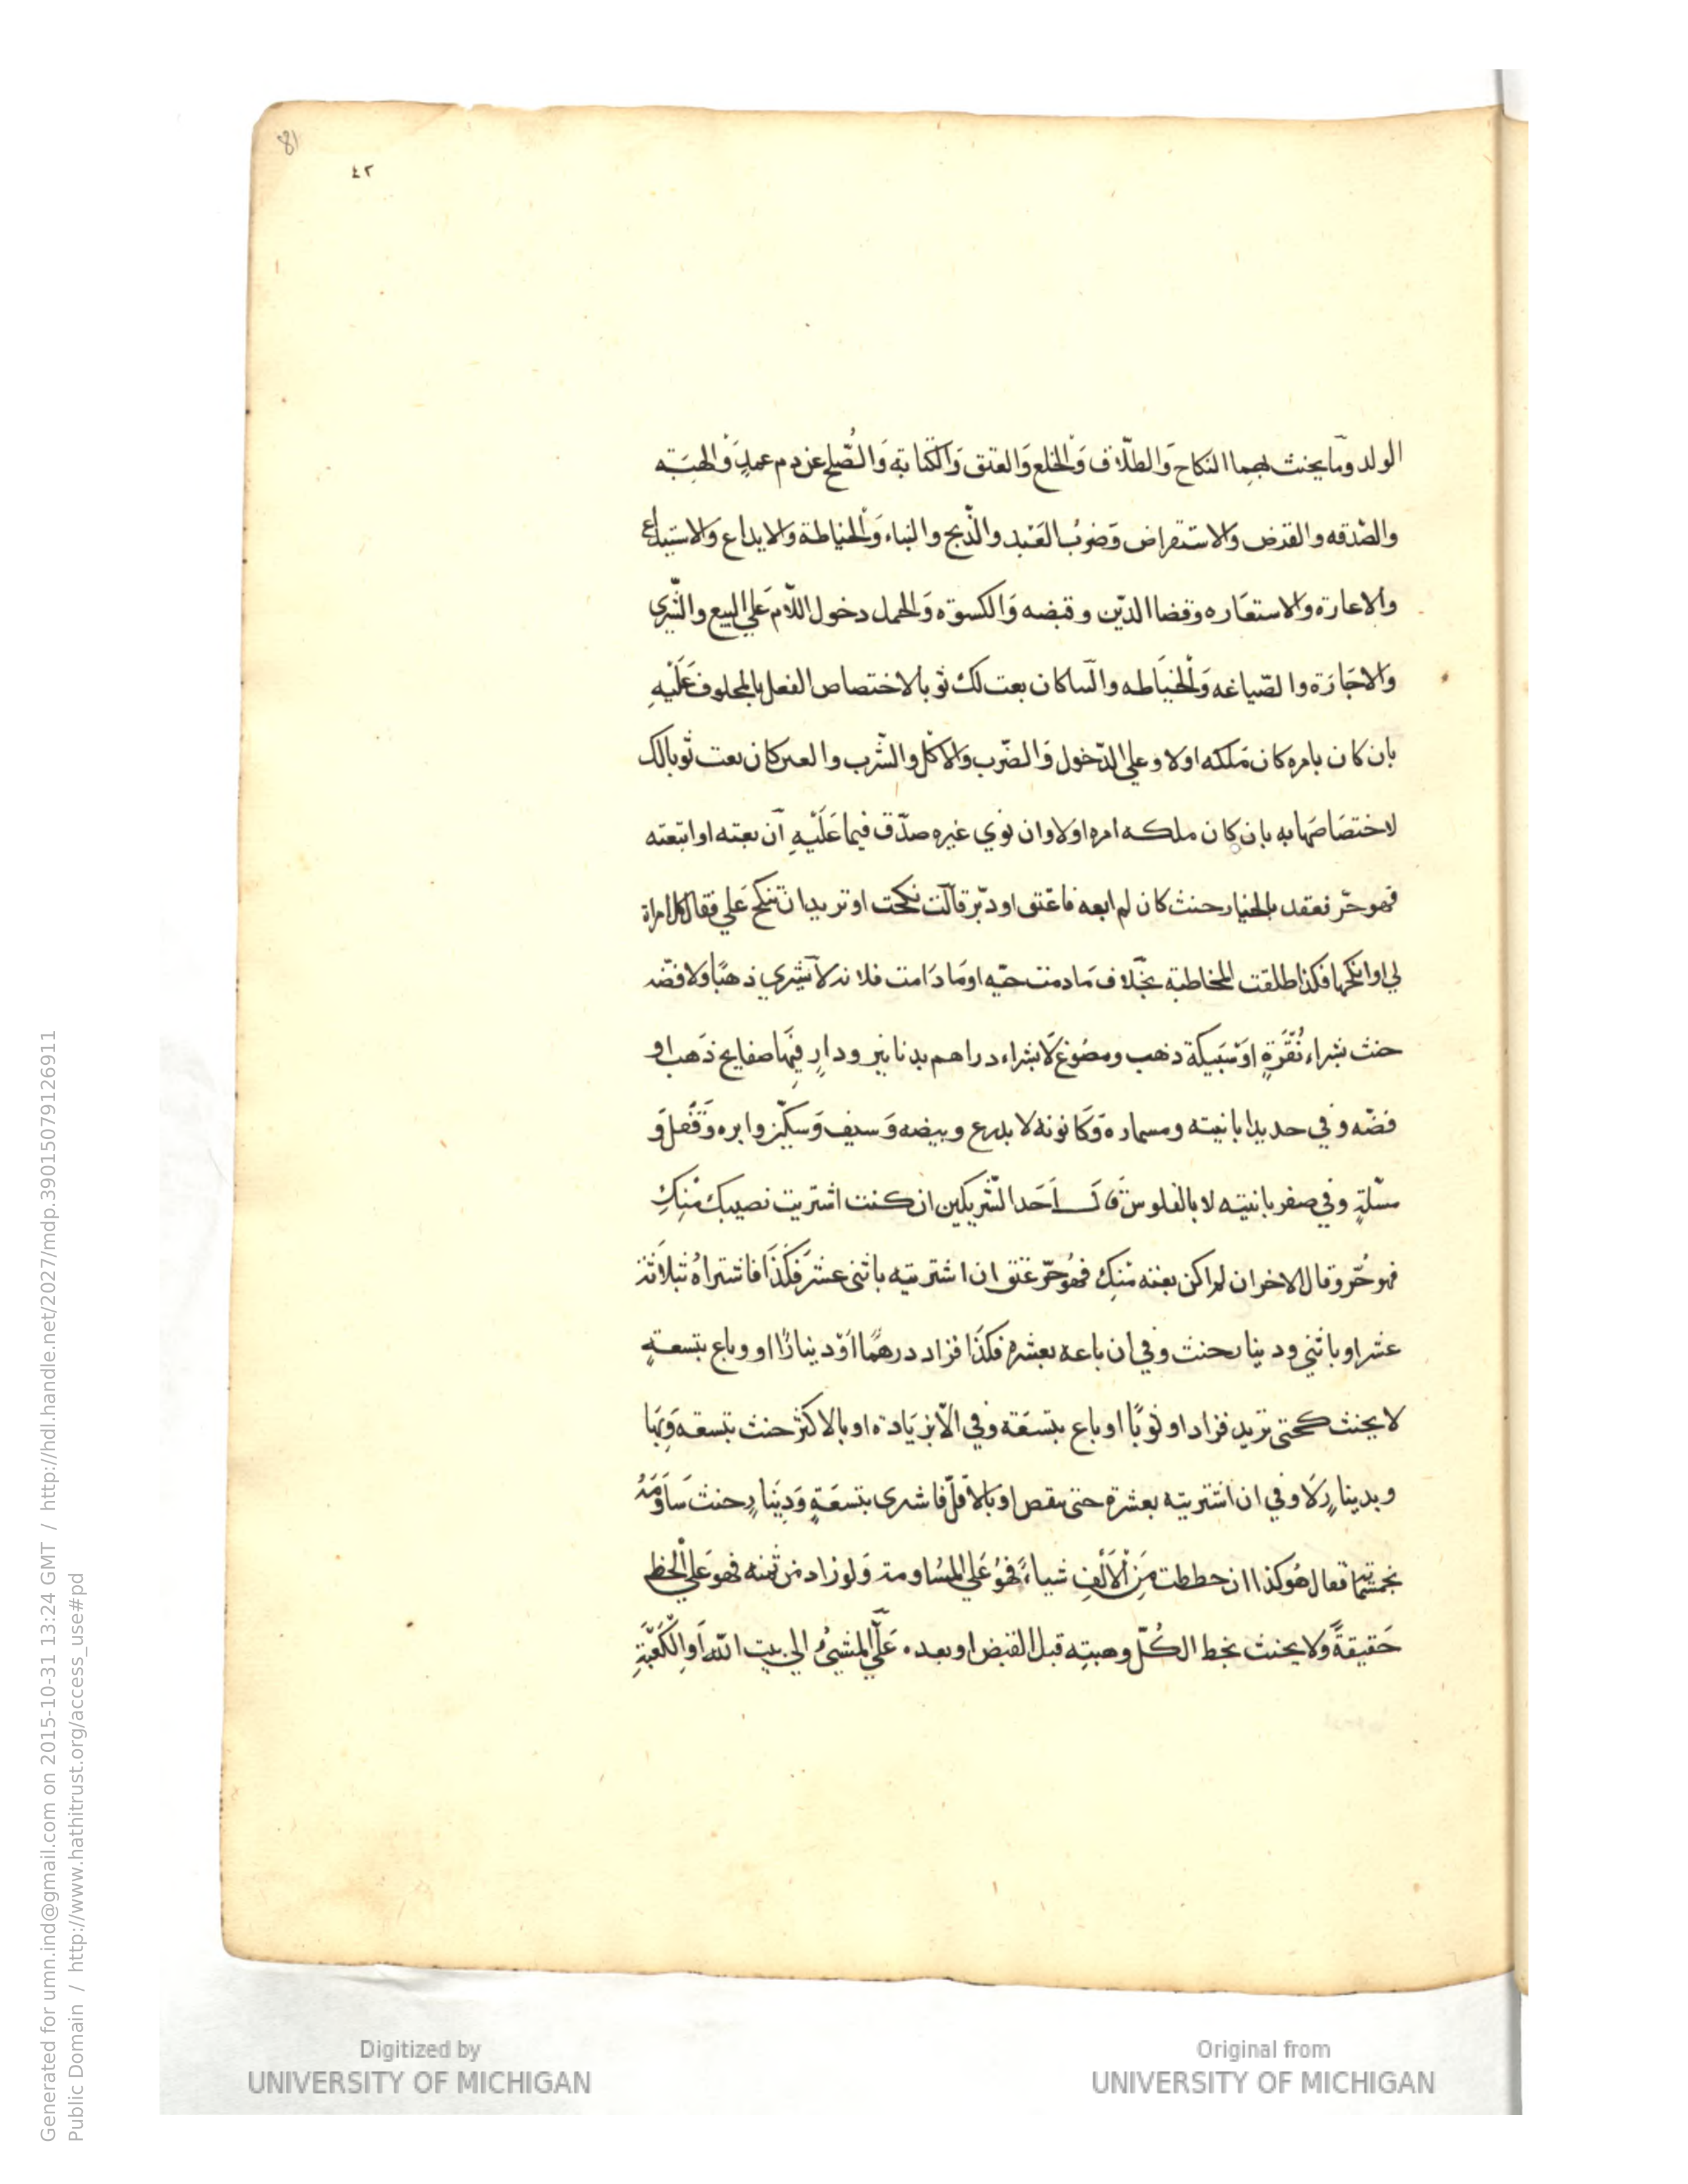 81
٤٢
الولد وما يحنث بهما النكاح والطلاق والخلع والعتق والكتابة والصلح عن دم عمد والهبته
والصدقه والقرض والاستقراض وضرب العبد والذبح والبناء والخياطة والايداع والاستيداع
والاعارة والاستعاره وقضا الدين وقبضه والكسوة والحمل دخول اللام علي البيع والشري
والاجارة والصياغه والخياطه والبنا كان بعت لك ثوبا لاختصاص الفعل بالمحلوف عليه
بان كان بامره كان ملكه اولا وعلي الدخول والضرب والاكل والشرب والعين كان بعت ثوبا لك
لاختصاصها به بان كان ملكه امره اولا وان نوي غيره صدق فيما عليه ان بعته او ابتعته
فهو حر فعقد بالخيار حنث كان لم ابعه فاعتق او دبر قالت نكحت او تريد ان تنكح علي فقال كل امراة
لي او انكحها فكذا طلقت المخاطبة بخلاف ما دمت حيه او ما دامت فلانه لا يشري ذهبا ولا فضه
حنث بشراء نقرة او سبيكة ذهب ومصوغ لا بشراء دراهم بدنانير ودار فيها صفايح ذهب او
فضه وفي حديد ابانيته ومسماره وكانونه لا بدرع وبيضه وسيف وسكين وابره وقفل و
مسلة وفي صفر بانيته لا بالفلوس قال احد الشريكين ان كنت اشتريت نصيبك منك
فهو حر وقال الاخر ان لم اكن بعته منك فهو حر عتق ان اشتريته باثني عشر فكذا فاشتراه بثلاثة
عشر او باثني ودينار يحنث وفي ان باعه بعشرة فكذا فزاد درهما او دينارا او وباع بتسعة
لا يحنث كحتي تزيد فزاد او ثوبا او باع بتسعة وفي الا بزيادة او بالاكثر حنث بتسعة وبها
وبدينار لا وفي ان اشتريته بعشرة حتي ينقص او بالاقل فاشري بتسعة ودينار حنث ساومه
بخمسمائة فقال هو كذا ان حططت من الالف شياء فهو علي المساومة ولو زاد من ثمنه فهو علي الحط
حقيقة ولا يحنث بحط الكل وهبته قبل القبض او بعده علي المشي الي بيت الله او الكعبة
Digitized by
UNIVERSITY OF MICHIGAN
Original from
UNIVERSITY OF MICHIGAN
Generated for umn.ind@gmail.com on 2015-10-31 13:24 GMT / http://hdl.handle.net/2027/mdp.39015079126911
Public Domain / http://www.hathitrust.org/access_use#pd